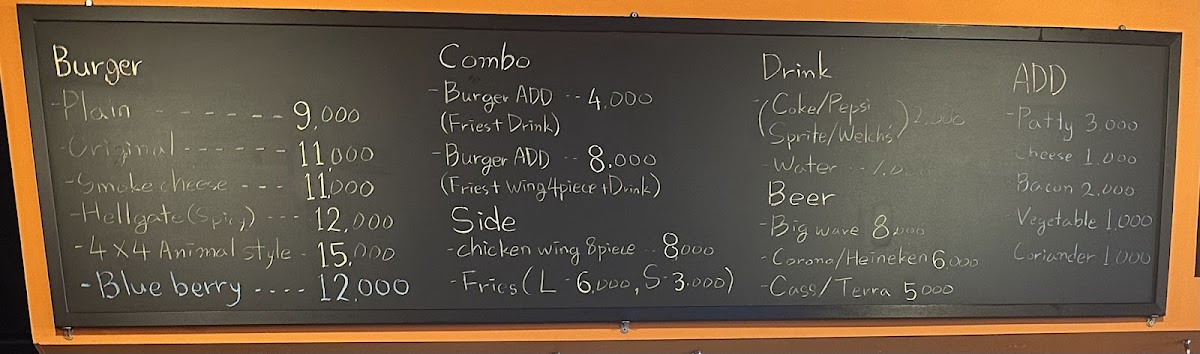 Burger
-Plain ------ 9,000
-Original ------ 11,000
-Smoke cheese --- 11,000
-Hellgate(Spicy) --- 12,000
-4X4 Animal style - 15,000
-Blue berry ---- 12,000
Combo
-Burger ADD -- 4,000
(Fries+Drink)
-Burger ADD -- 8,000
(Fries+wing4piece+Drink)
Side
-chicken wing 8piece -- 8000
-Fries(L-6,000, S-3,000)
Drink
-(Coke/Pepsi
Sprite/Welchs) 2,000
-Water --
Beer
-Big wave 8,000
-Corona/Heineken 6,000
-Cass/Terra 5000
ADD
-Patty 3,000
Cheese 1,000
Bacon 2,000
-Vegetable 1,000
Coriander 1,000